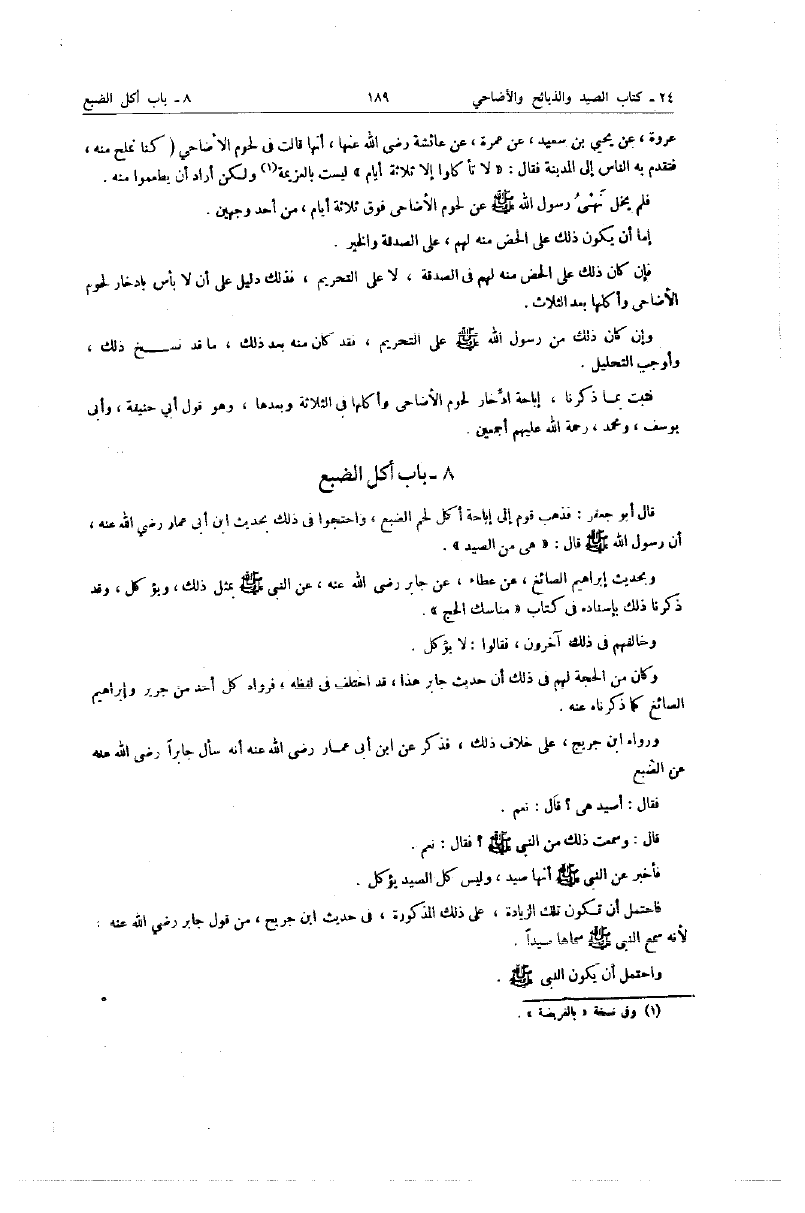 ٢٤ ـ كتاب الصيد والذبائح والأضاحي ١٨٩ ٨ ـ باب أكل الضبع
عروة ، عن يحيى بن سعيد ، عن عمرة ، عن عائشة رضى الله عنها ، أنها قالت فى لحوم الأضاحي ( كنا نملح منه ،
فنقدم به الناس إلى المدينة فقال : « لا تأكلوا إلا ثلاثة أيام » ليست بالعزيمة(١) ولكن أراد أن يطعموا منه .
فلم يخل نَهْىُ رسول الله ﷺ عن لحوم الأضاحى فوق ثلاثة أيام ، من أحد وجهين .
إما أن يكون ذلك على الحض منه لهم ، على الصدقة والخير .
فإن كان ذلك على الحض منه لهم فى الصدقة ، لا على التحريم ، فذلك دليل على أن لا بأس بادخار لحوم
الأضاحى وأكلها بعد الثلاث .
وإن كان ذلك من رسول الله ﷺ على التحريم ، فقد كان منه بعد ذلك ، ما قد نسـخ ذلك ،
وأوجب التحليل .
فثبت بما ذكرنا ، إباحة ادِّخار لحوم الأضاحى وأكلها فى الثلاثة وبعدها ، وهو قول أبي حنيفة ، وأبى
يوسف ، ومحمد ، رحمة الله عليهم أجمعين .
٨ ـ باب أكل الضبع
قال أبو جعفر : فذهب قوم إلى إباحة أكل لحم الضبع ، واحتجوا فى ذلك بحديث ابن أبى عمار رضي الله عنه ،
أن رسول الله ﷺ قال : « هى من الصيد » .
وبحديث إبراهيم الصائغ ، عن عطاء ، عن جابر رضى الله عنه ، عن النبي ﷺ بمثل ذلك ، ويؤكل ، وقد
ذكرنا ذلك بإسناده فى كتاب « مناسك الحج » .
وخالفهم فى ذلك آخرون ، فقالوا : لا يؤكل .
وكان من الحجة لهم فى ذلك أن حديث جابر هذا ، قد اختلف فى لفظه ، فرواه كل أحد من جرير وإبراهيم
الصائغ كما ذكرناه عنه .
ورواه ابن جريج ، على خلاف ذلك ، فذكر عن ابن أبى عمار رضى الله عنه أنه سأل جابراً رضى الله عنه
عن الضَّبع
فقال : أصيد هى ؟ قال : نعم .
قال : وسمعت ذلك من النبي ﷺ ؟ فقال : نعم .
فأخبر عن النبي ﷺ أنها صيد ، وليس كل الصيد يؤكل .
فاحتمل أن تكون تلك الزيادة ، على ذلك المذكورة ، فى حديث ابن جريج ، من قول جابر رضي الله عنه :
لأنه سمع النبي ﷺ سماها صيداً .
واحتمل أن يكون النبي ﷺ .
(١) وفى نسخة « بالفريضة » .